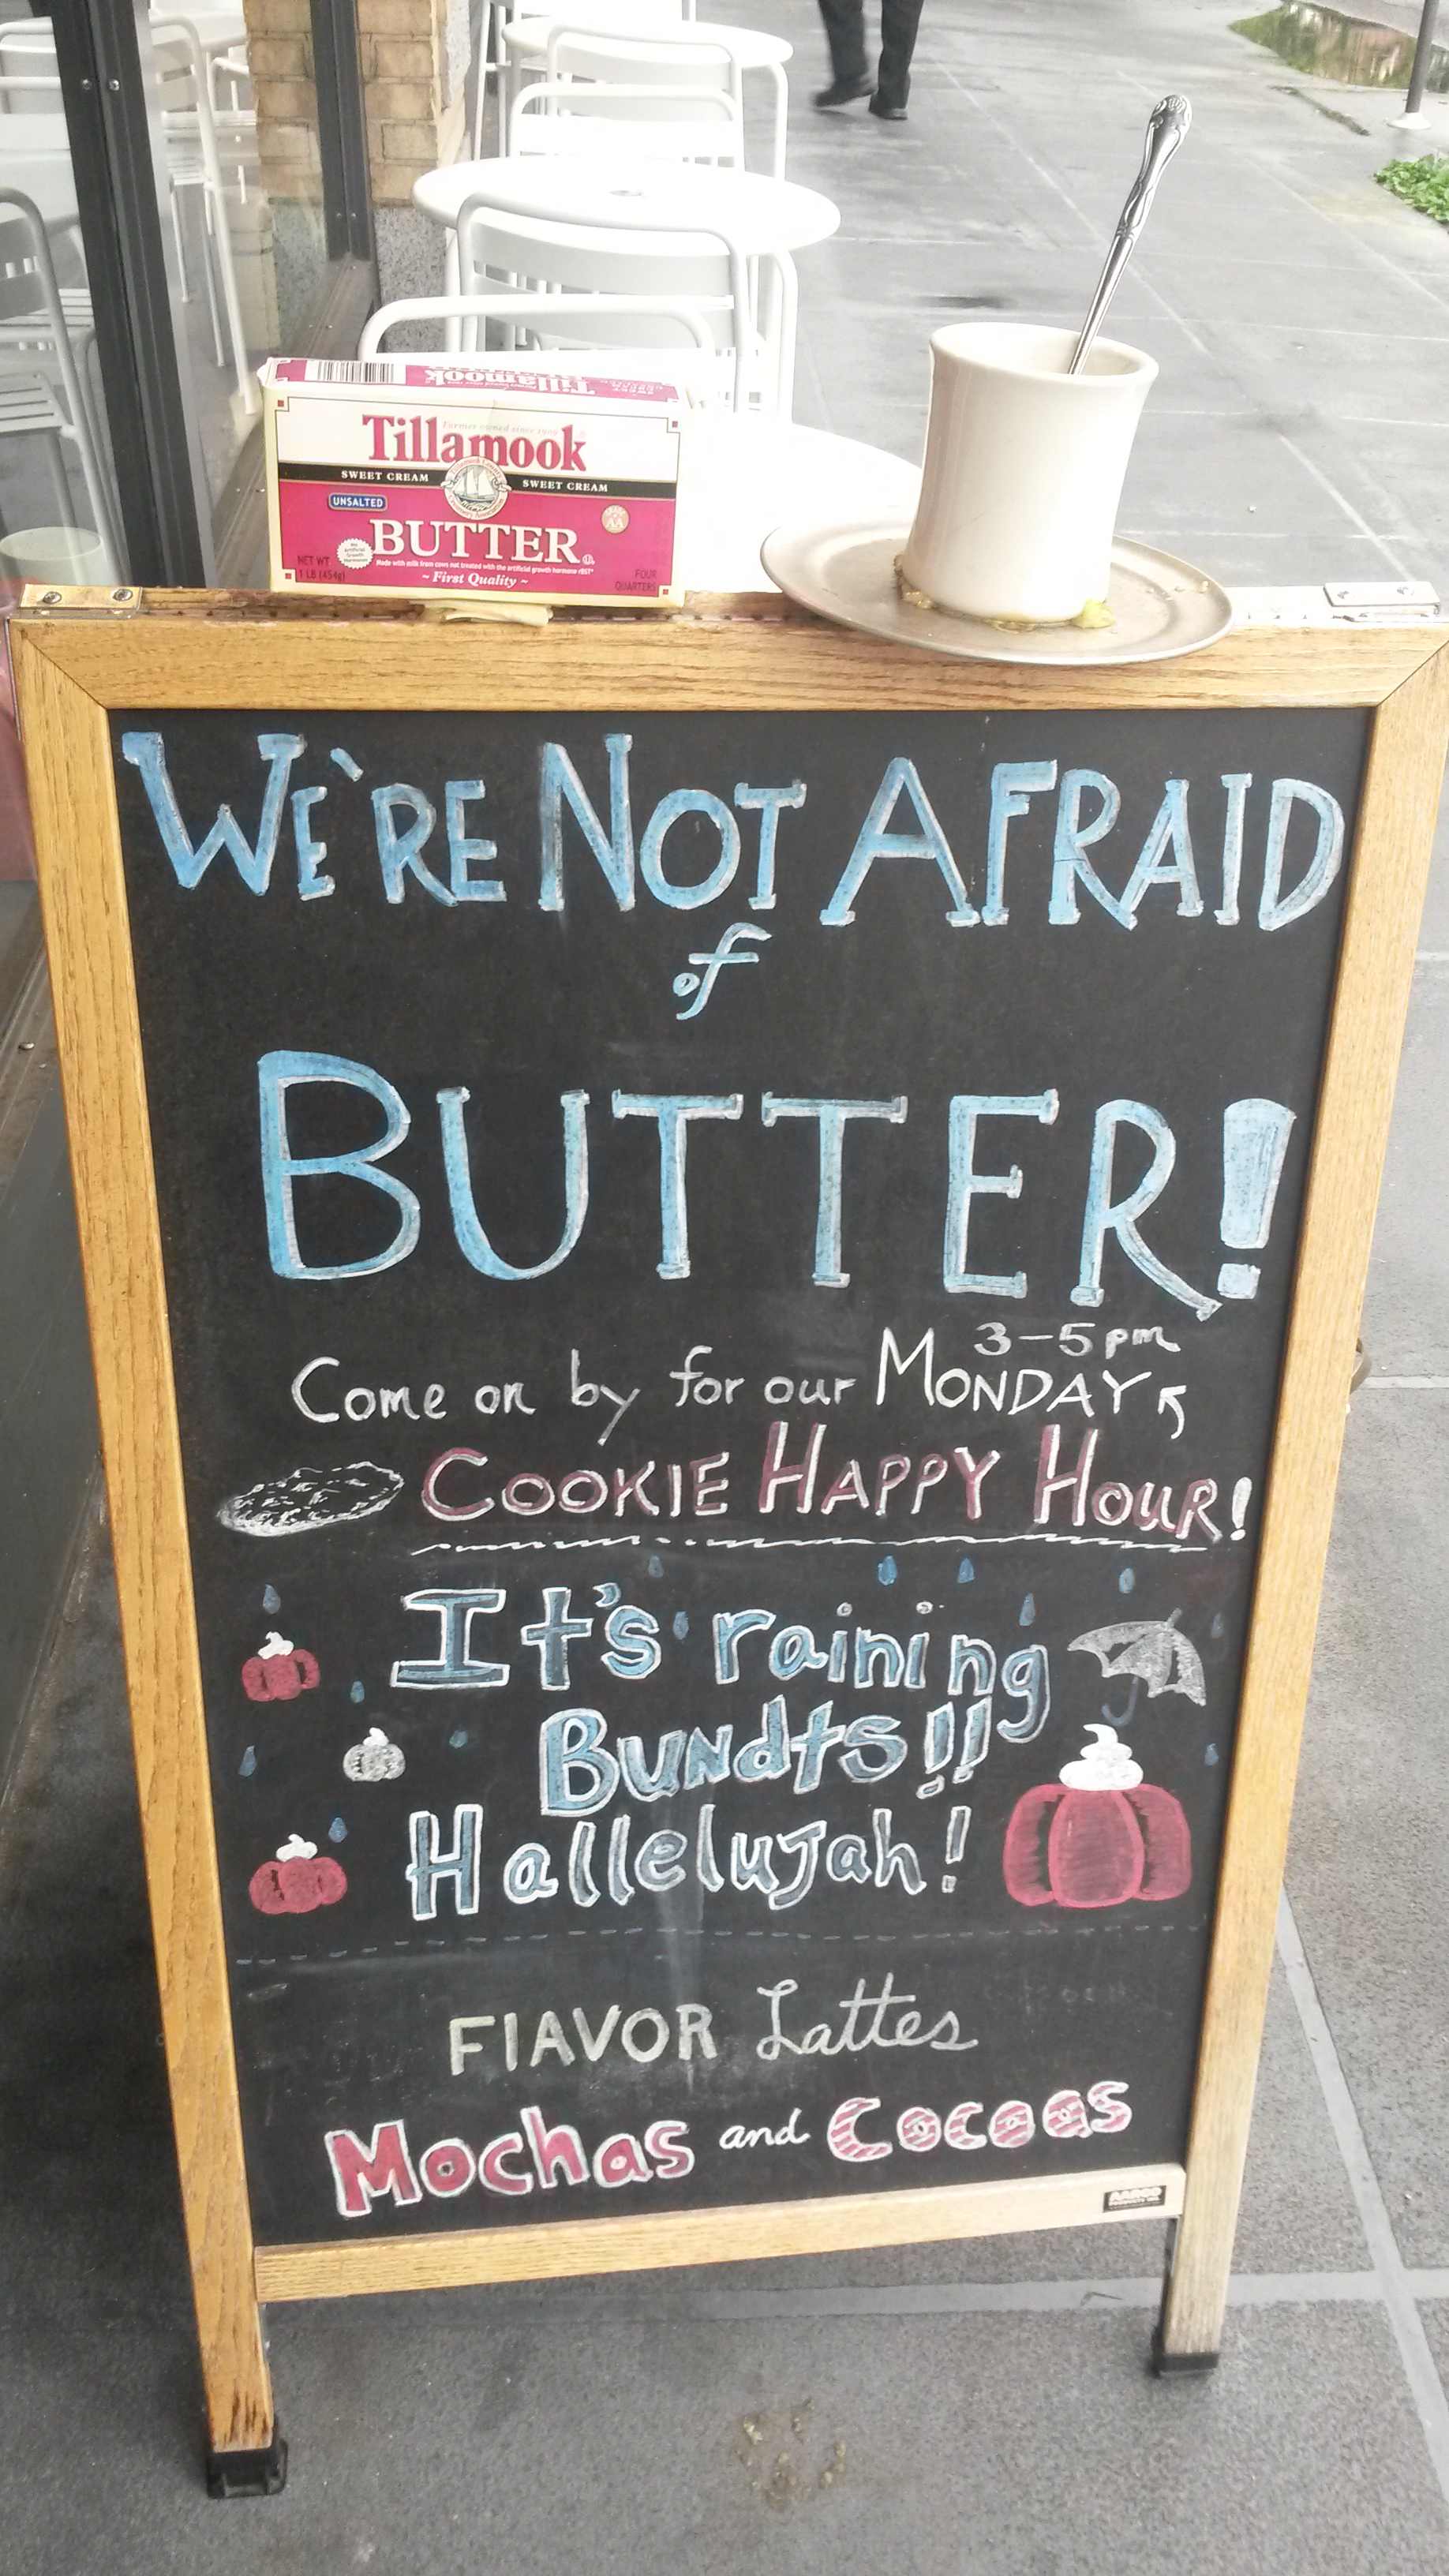 Tillamook
Farmer owned since 1909
Tillamook
SWEET CREAM SWEET CREAM
UNSALTED
BUTTER
No Artificial Growth Hormones
Made with milk from cows not treated with the artificial growth hormone rBST*
NET WT
1 LB (454g)
~ First Quality ~
FOUR
QUARTERS
AA
WE'RE NOT AFRAID
of
BUTTER!
3-5pm
Come on by for our MONDAY
COOKIE HAPPY HOUR!
It's raining
BUNdtS!!
HalleluJah!
FlAVOR Lattes
Mochas and Cocoas
AARCO
PRODUCTS INC.